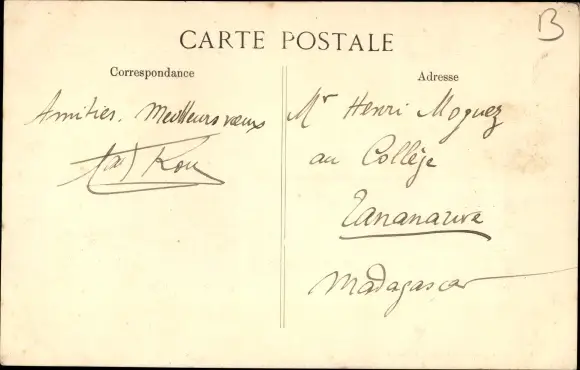 B
CARTE POSTALE
Correspondance
Amitiés. Meilleurs vœux
Adresse
Mr Henri Moguez
au Collège
Tananarive
Madagascar